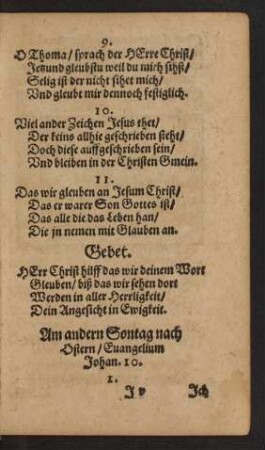 9.
O Thoma/ sprach der HErre Christ/
Jetzund gleubstu weil du mich sihst/
Selig ist der nicht sihet mich/
Vnd gleubt mir dennoch festiglich.
10.
Viel ander Zeichen Jesus thet/
Der keins allhie geschrieben steht/
Doch diese auffgeschrieben sein/
Vnd bleiben in der Christen Gmein.
11.
Das wir gleuben an Jesum Christ/
Das er warer Son Gottes ist/
Das alle die das Leben han/
Die jn nemen mit Glauben an.
Gebet.
HErr Christ hilff das wir deinem Wort
Gleuben/ biß das wir sehen dort
Werden in aller Herrligkeit/
Dein Angesicht in Ewigkeit.
Am andern Sontag nach
Ostern/ Euangelium
Johan. 10.
1.
J v Jch